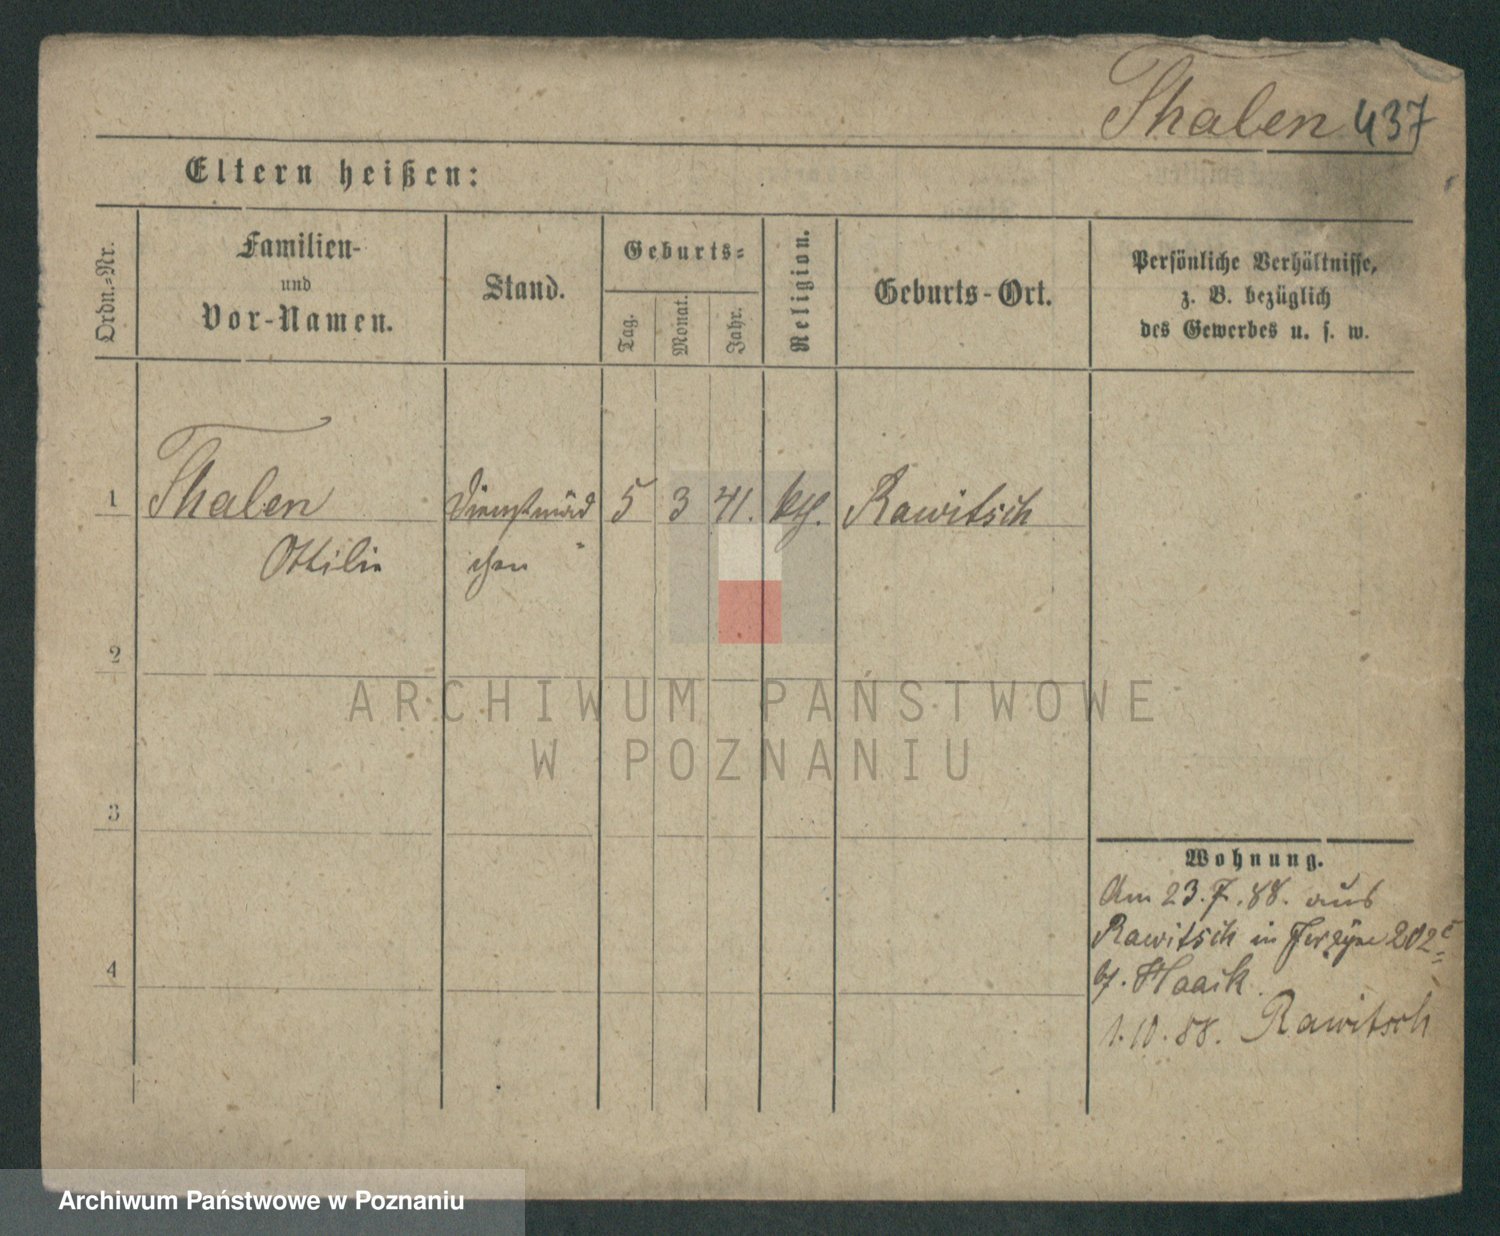 Thalen 437
Eltern heißen:
Ordn.-Nr.
Familien-
und
Vor-Namen.
Stand.
Geburts-
Tag.
Monat.
Jahr.
Religion.
Geburts-Ort.
Persönliche Verhältnisse,
z. B. bezüglich
des Gewerbes u. s. w.
1 Thalen Dienstmäd 5 3 41. kth. Rawitsch
Ottilie chen
2
3
4
Wohnung.
Am 23.7.88. aus
Rawitsch in 202
b/. Haack.
1.10.88. Rawitsch
ARCHIWUM PAŃSTWOWE
W POZNANIU
Archiwum Państwowe w Poznaniu